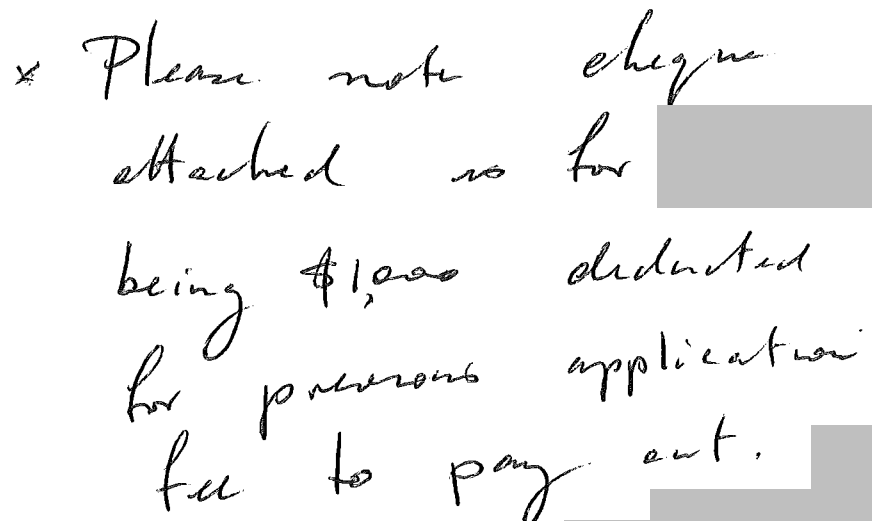 * Please note cheque
attached is for
being $1,000 deducted
for previous application
fee to pay out.